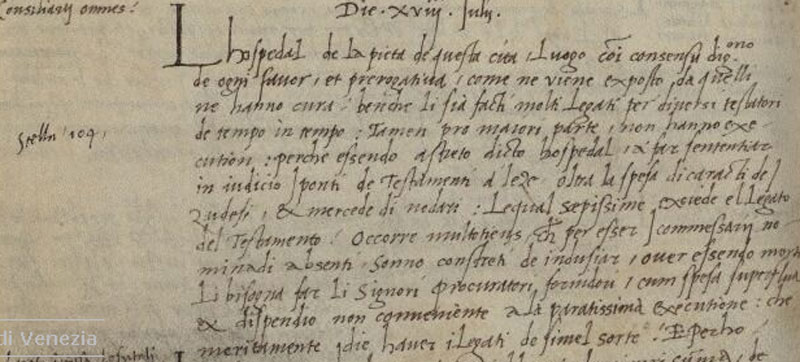 Consiliarij omnes:
Die . xviij . Julij .
Lhospedal de la pieta de questa cita, Luogo coi consensu dig.mo
de ogni favor, et prerogativa, come ne viene exposto, da quelli
ne hanno cura: benche li sia facti molti Legati per diversi testatori
Stelln' 109,
de tempo in tempo: Tamen pro maiori parte, non hanno exe
cution: perche essendo astreto dicto hospedal, a far sententiar
in iudicio ponti de Testamenti a leze oltra la spesa di caracti de
zudesi, & mercede di nodari: Lequal sæpissime excede el Legato
del Testamento: Occorre multotiens, ch' per esser commessarij no
minadi absenti sonno constreti de indusiar, over essendo morti
Li bisogna far li Signori procuratori, cum spesa superflua
& dispendio non conveniente a la paratissima executione: che
di Venezia
meritamente, die haver i Legati de simel sorte: Perho